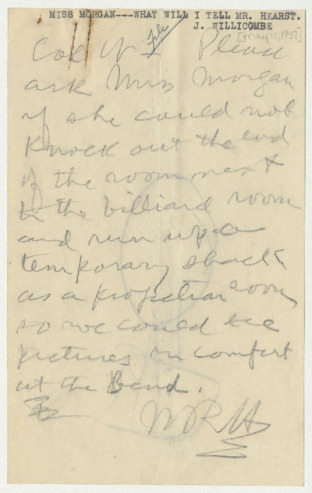 MISS MORGAN---WHAT WILL I TELL MR. HEARST.
J. WILLICOMBE
[May 11, 1937]
Col W File Please
ask Miss Morgan
if she could not
Knock out the end
of the room next
to the billiard room
and run up a
temporary shack
as a projection room
so we could see
pictures in comfort
at the Bend.
WRH